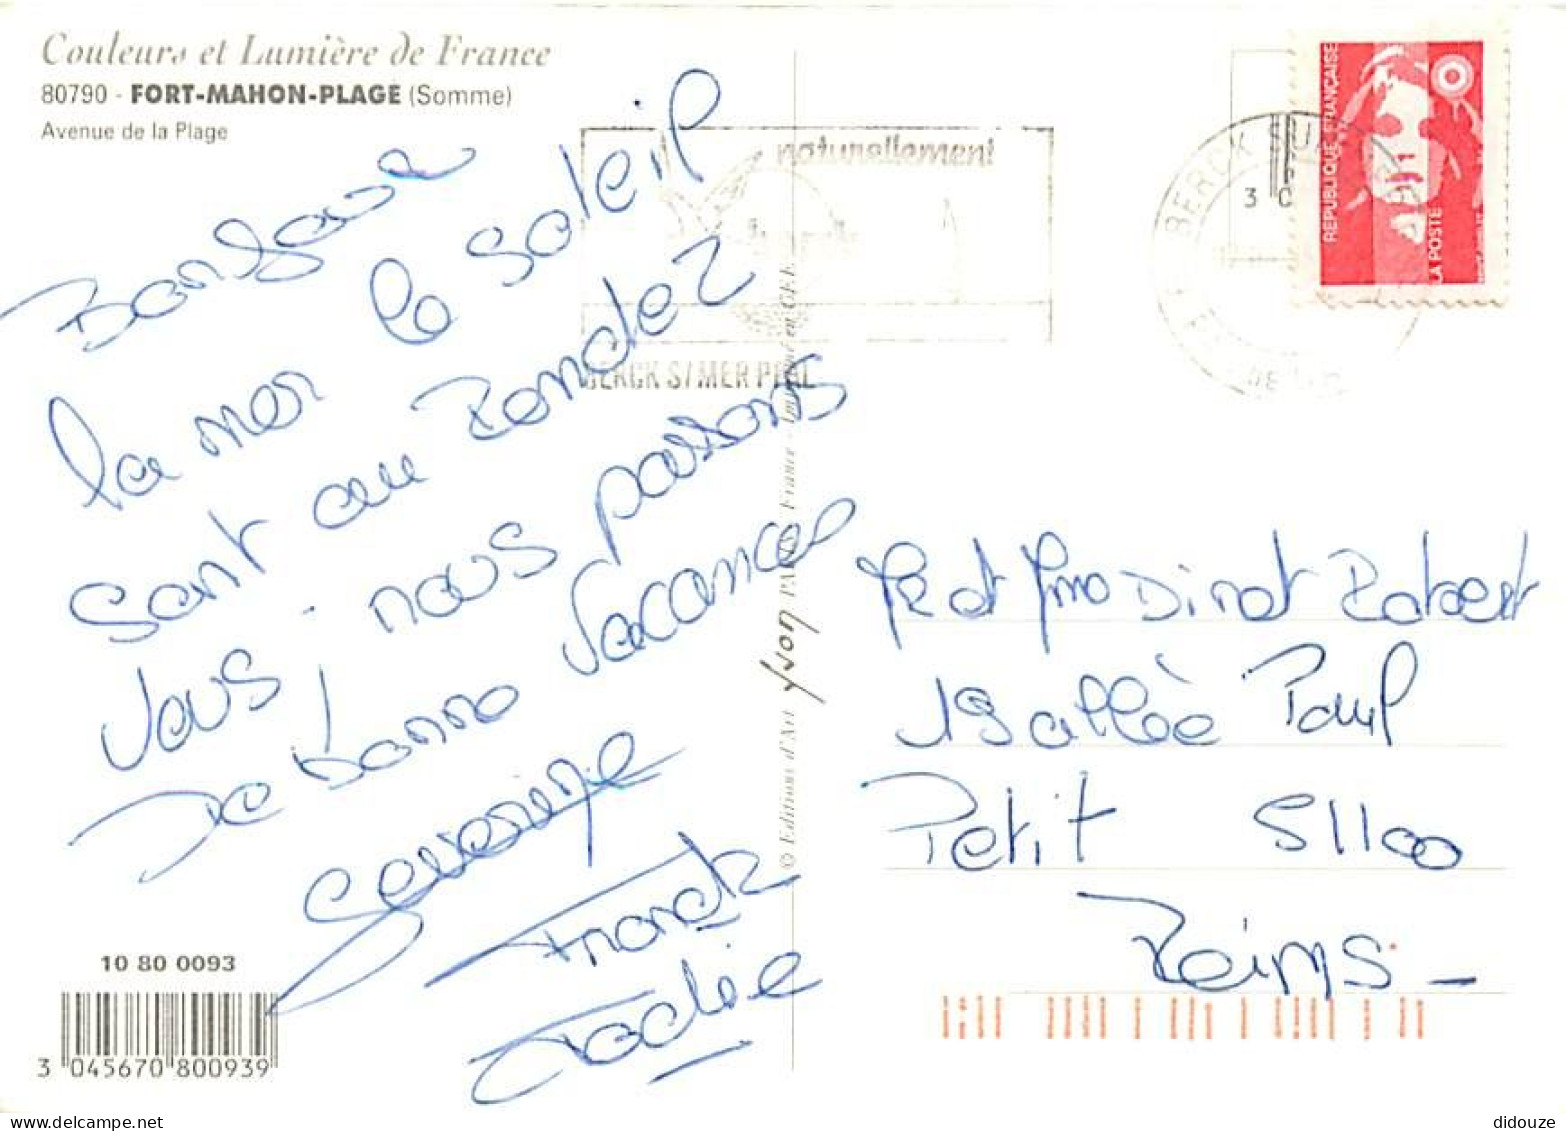 Couleurs et Lumière de France
80790 - FORT-MAHON-PLAGE (Somme)
Avenue de la Plage
Bonjour
la mer le soleil
sont au rendez
vous; nous passons
De bonne vacances
Severine
Franck
Jackie
10 80 0093
3 045670 800939
© Editions d'Art yvon France - Imprimé en CEE
naturellement
BERCK S/MER PPAL
BERCK SUR
3 0
REPUBLIQUE FRANÇAISE
LA POSTE
Mr et Mme Dinot Robert
19 allée Paul
Petit 51100
Reims -
didouze